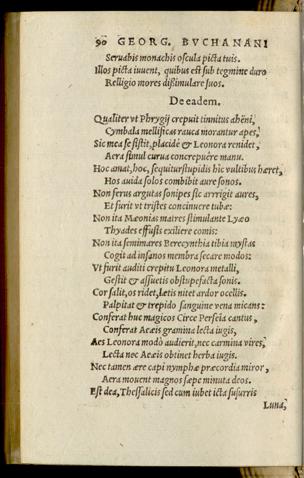 90 GEORG. BVCHANANI
Seruabis monachis oscula picta tuis.
Illos picta iuuent, quibus est sub tegmine duro
Relligio mores dißimulare suos.
De eadem.
Qualiter vt Phrygij crepuit tinnitus ahëni,
Cymbala mellificas rauca morantur apes,
Sic mea se sistit, placidè & Leonora renidet,
Aera simul curua concrepuêre manu.
Hoc amat, hoc, sequitur stupidis hîc vultibus hæret,
Hos auida solos combibit aure sonos.
Non ferus argutas sonipes sic arrigit aures,
Et furit vt tristes concinuere tubæ:
Non ita Mæonias matres stimulante Lyæo
Thyades effusis exiliere comis:
Non ita semimares Berecynthia tibia mystas
Cogit ad insanos membra secare modos:
Vt furit auditi crepitu Leonora metalli,
Gestit & assuetis obstupefacta sonis.
Cor salit, os ridet, lætis nitet ardor ocellis.
Palpitat & trepido sanguine vena micans:
Conferat huc magicos Circe Perseia cantus,
Conferat Acæis gramina lecta iugis,
Aes Leonora modò audierit, nec carmina vires,
Lecta nec Acæis obtinet herba iugis.
Nec tamen ære capi nymphæ præcordia miror,
Aera mouent magnos sæpe minuta deos.
Est dea, Thessalicis sed cum iubet icta susurris
Luna,